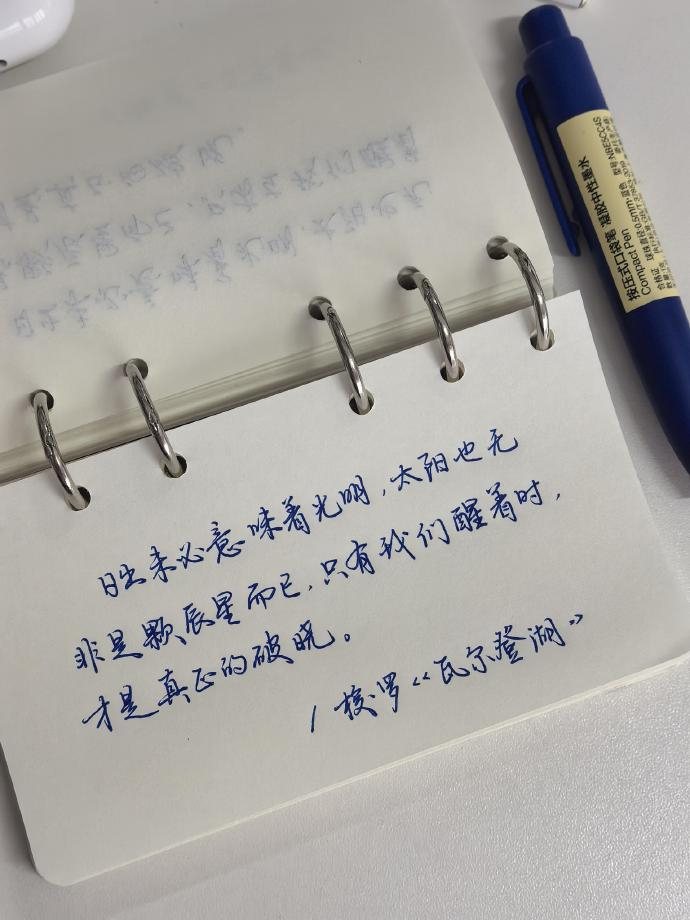 日出未必意味着光明，太阳也无
非是颗辰星而已，只有我们醒着时，
才是真正的破晓。
/ 梭罗《瓦尔登湖》
按压式口袋笔 凝胶中性墨水
Compact Pen